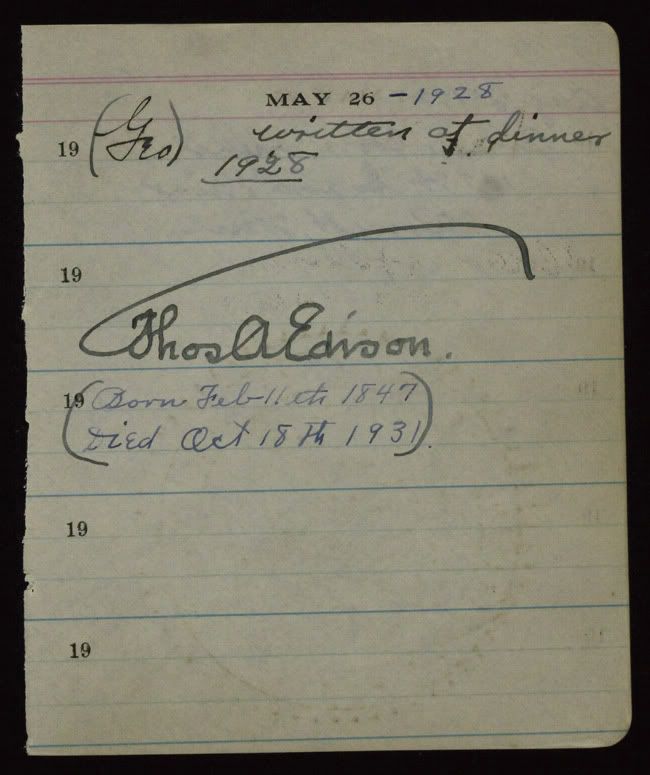 MAY 26 - 1928
19 (Geo) written at dinner
1928
19
Thos A Edison.
19 (Born Feb 11th 1847
Died Oct 18th 1931).
19
19